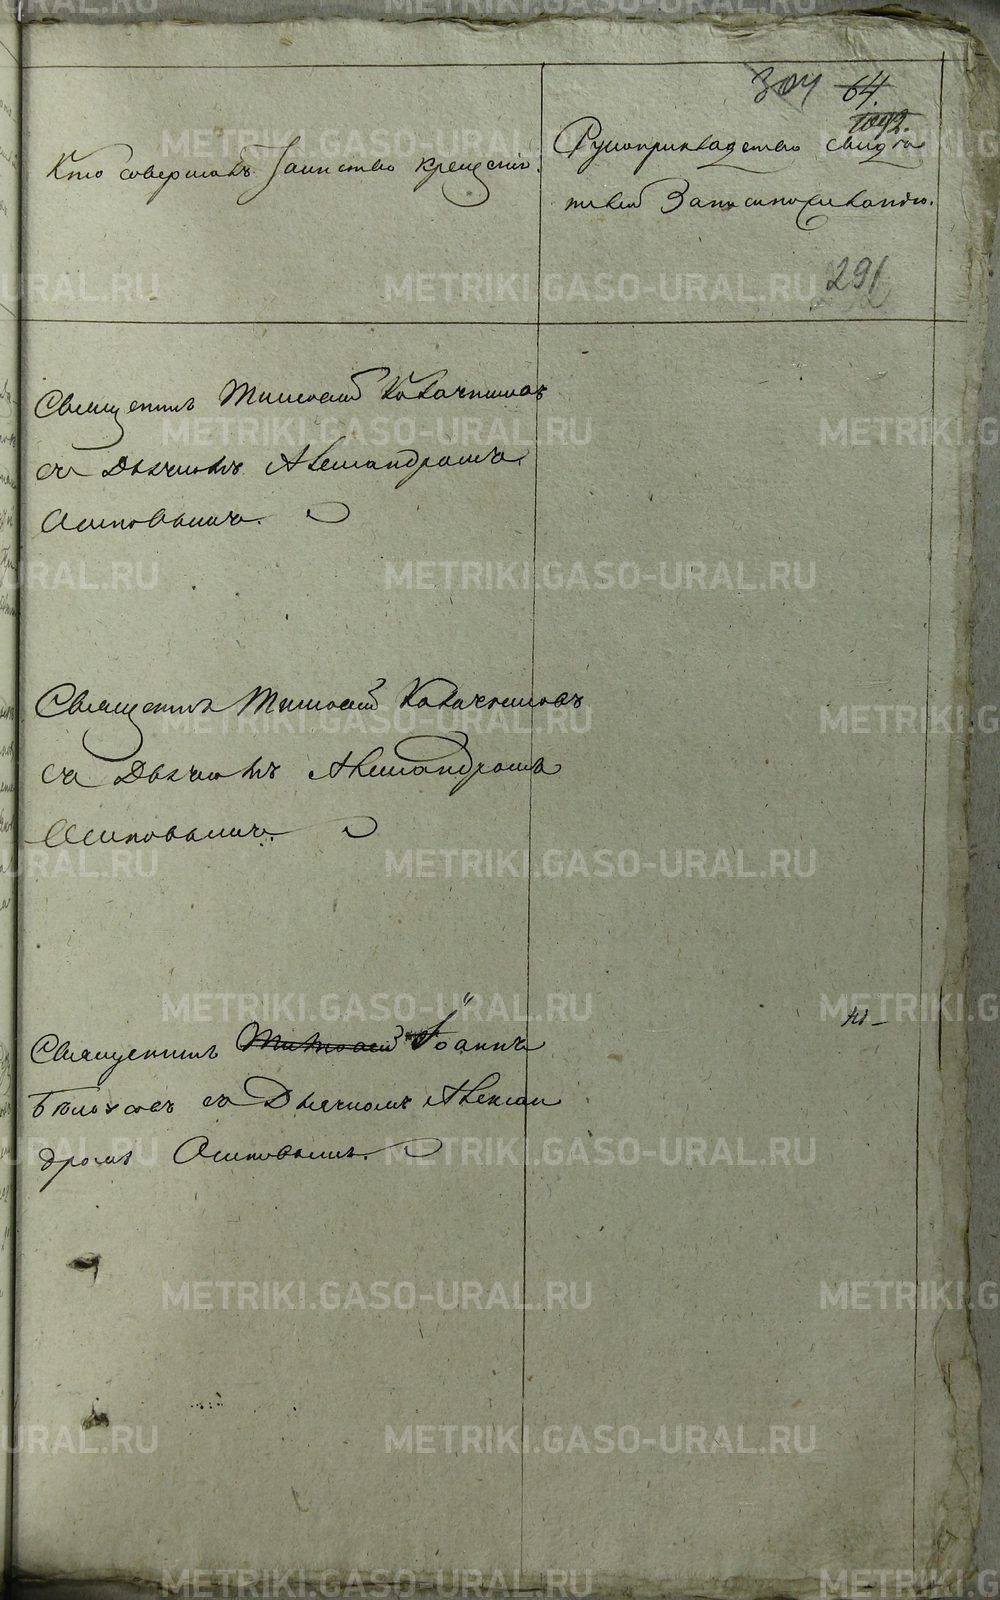 304 64.
1092.
Кто совершалъ Таинство крещенія.
Рукоприкладство свидѣ
телей Записи по желанію.
291
Священникъ Тимофей Кавачниковъ
съ Дьячкомъ Александромъ
Осиповымъ.
Священникъ Тимофей Кавачниковъ
съ Дьячкомъ Александромъ
Осиповымъ.
Священникъ Тимофей Іоаннъ
Бѣлоусовъ съ Дьячкомъ Алексан
дромъ Осиповымъ.
METRIKI.GASO-URAL.RU